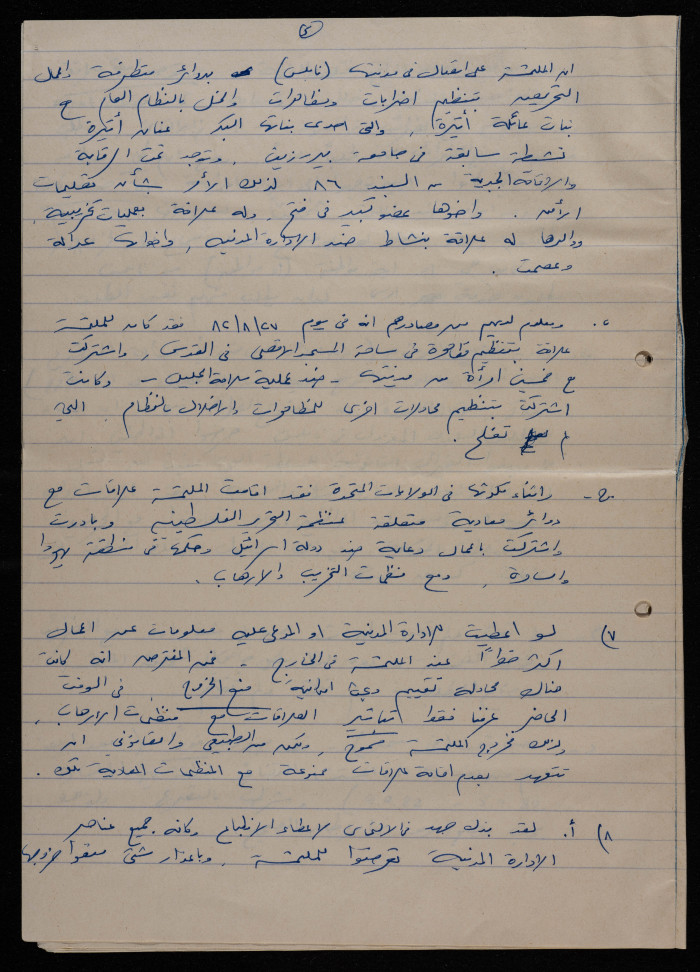 (٥)
ان الملتمسة على اتصال في مدينتها (نابلس) بدوائر متطرفة واعمال
التحريض بتنظيم اضرابات ومظاهرات والخل بالنظام العام مع
بنات عائلة أتيرة، والتي احدى بناتها البكر عنان أتيرة
نشطة سابقة في جامعة بيرزيت، وتوجد تحت الرقابة
والاقامة الجبرية من البند ٨٦ لذلك الأمر بشأن تعليمات
الأمن. واخوها عضو كبير في فتح، وله علاقة بعمليات تخريبية،
ووالدها له علاقة بنشاط ضد الادارة المدنية، واخواتها عدالة
وعصمت.
ب. ومعلوم لديهم من مصادرهم انه في يوم ٨٢/٨/٢٧ فقد كان للملتمسة
علاقة بتنظيم تظاهرة في ساحة المسجد الاقصى في القدس، واشتركت
مع خمسين امرأة من مدينتها - ضد عملية سلامة الجليل - وكانت
اشتركت بتنظيم محاولات اخرى للمظاهرات والاخلال بالنظام التي
لم تفلح.
ج- واثناء مكوثها في الولايات المتحدة فقد اقامت الملتمسة علاقات مع
دوائر معادية متعلقة بمنظمة التحرير الفلسطينية وبادرت
واشتركت باعمال دعاية ضد دولة اسرائيل وحكمها في منطقة يهودا
والسامرة، ومع منظمات التخريب والارهاب.
٧) لو اعطيت للادارة المدنية او المدعى عليه معلومات عن اعمال
اكثر خطراً عند الملتمسة في الخارج - فمن المفترض انه كانت
هناك محاولة تقييم وبحث امكانية منع الخروج، في الوقت
الحاضر عرفنا فقط العلاقات مع منظمات الارهاب،
ولذلك فخروج الملتمسة مسموح، ولكن من الطبيعي والقانوني ان
تتعهد بعدم اقامة علاقات ممنوعة مع المنظمات المعادية تلك.
٨) أ. لقد بذل جهد في الالتماس لاعطاء الانطباع وكأنه جميع عناصر
الادارة المدنية تعرضوا للملتمسة، وباعذار شتى منعوا خروجها